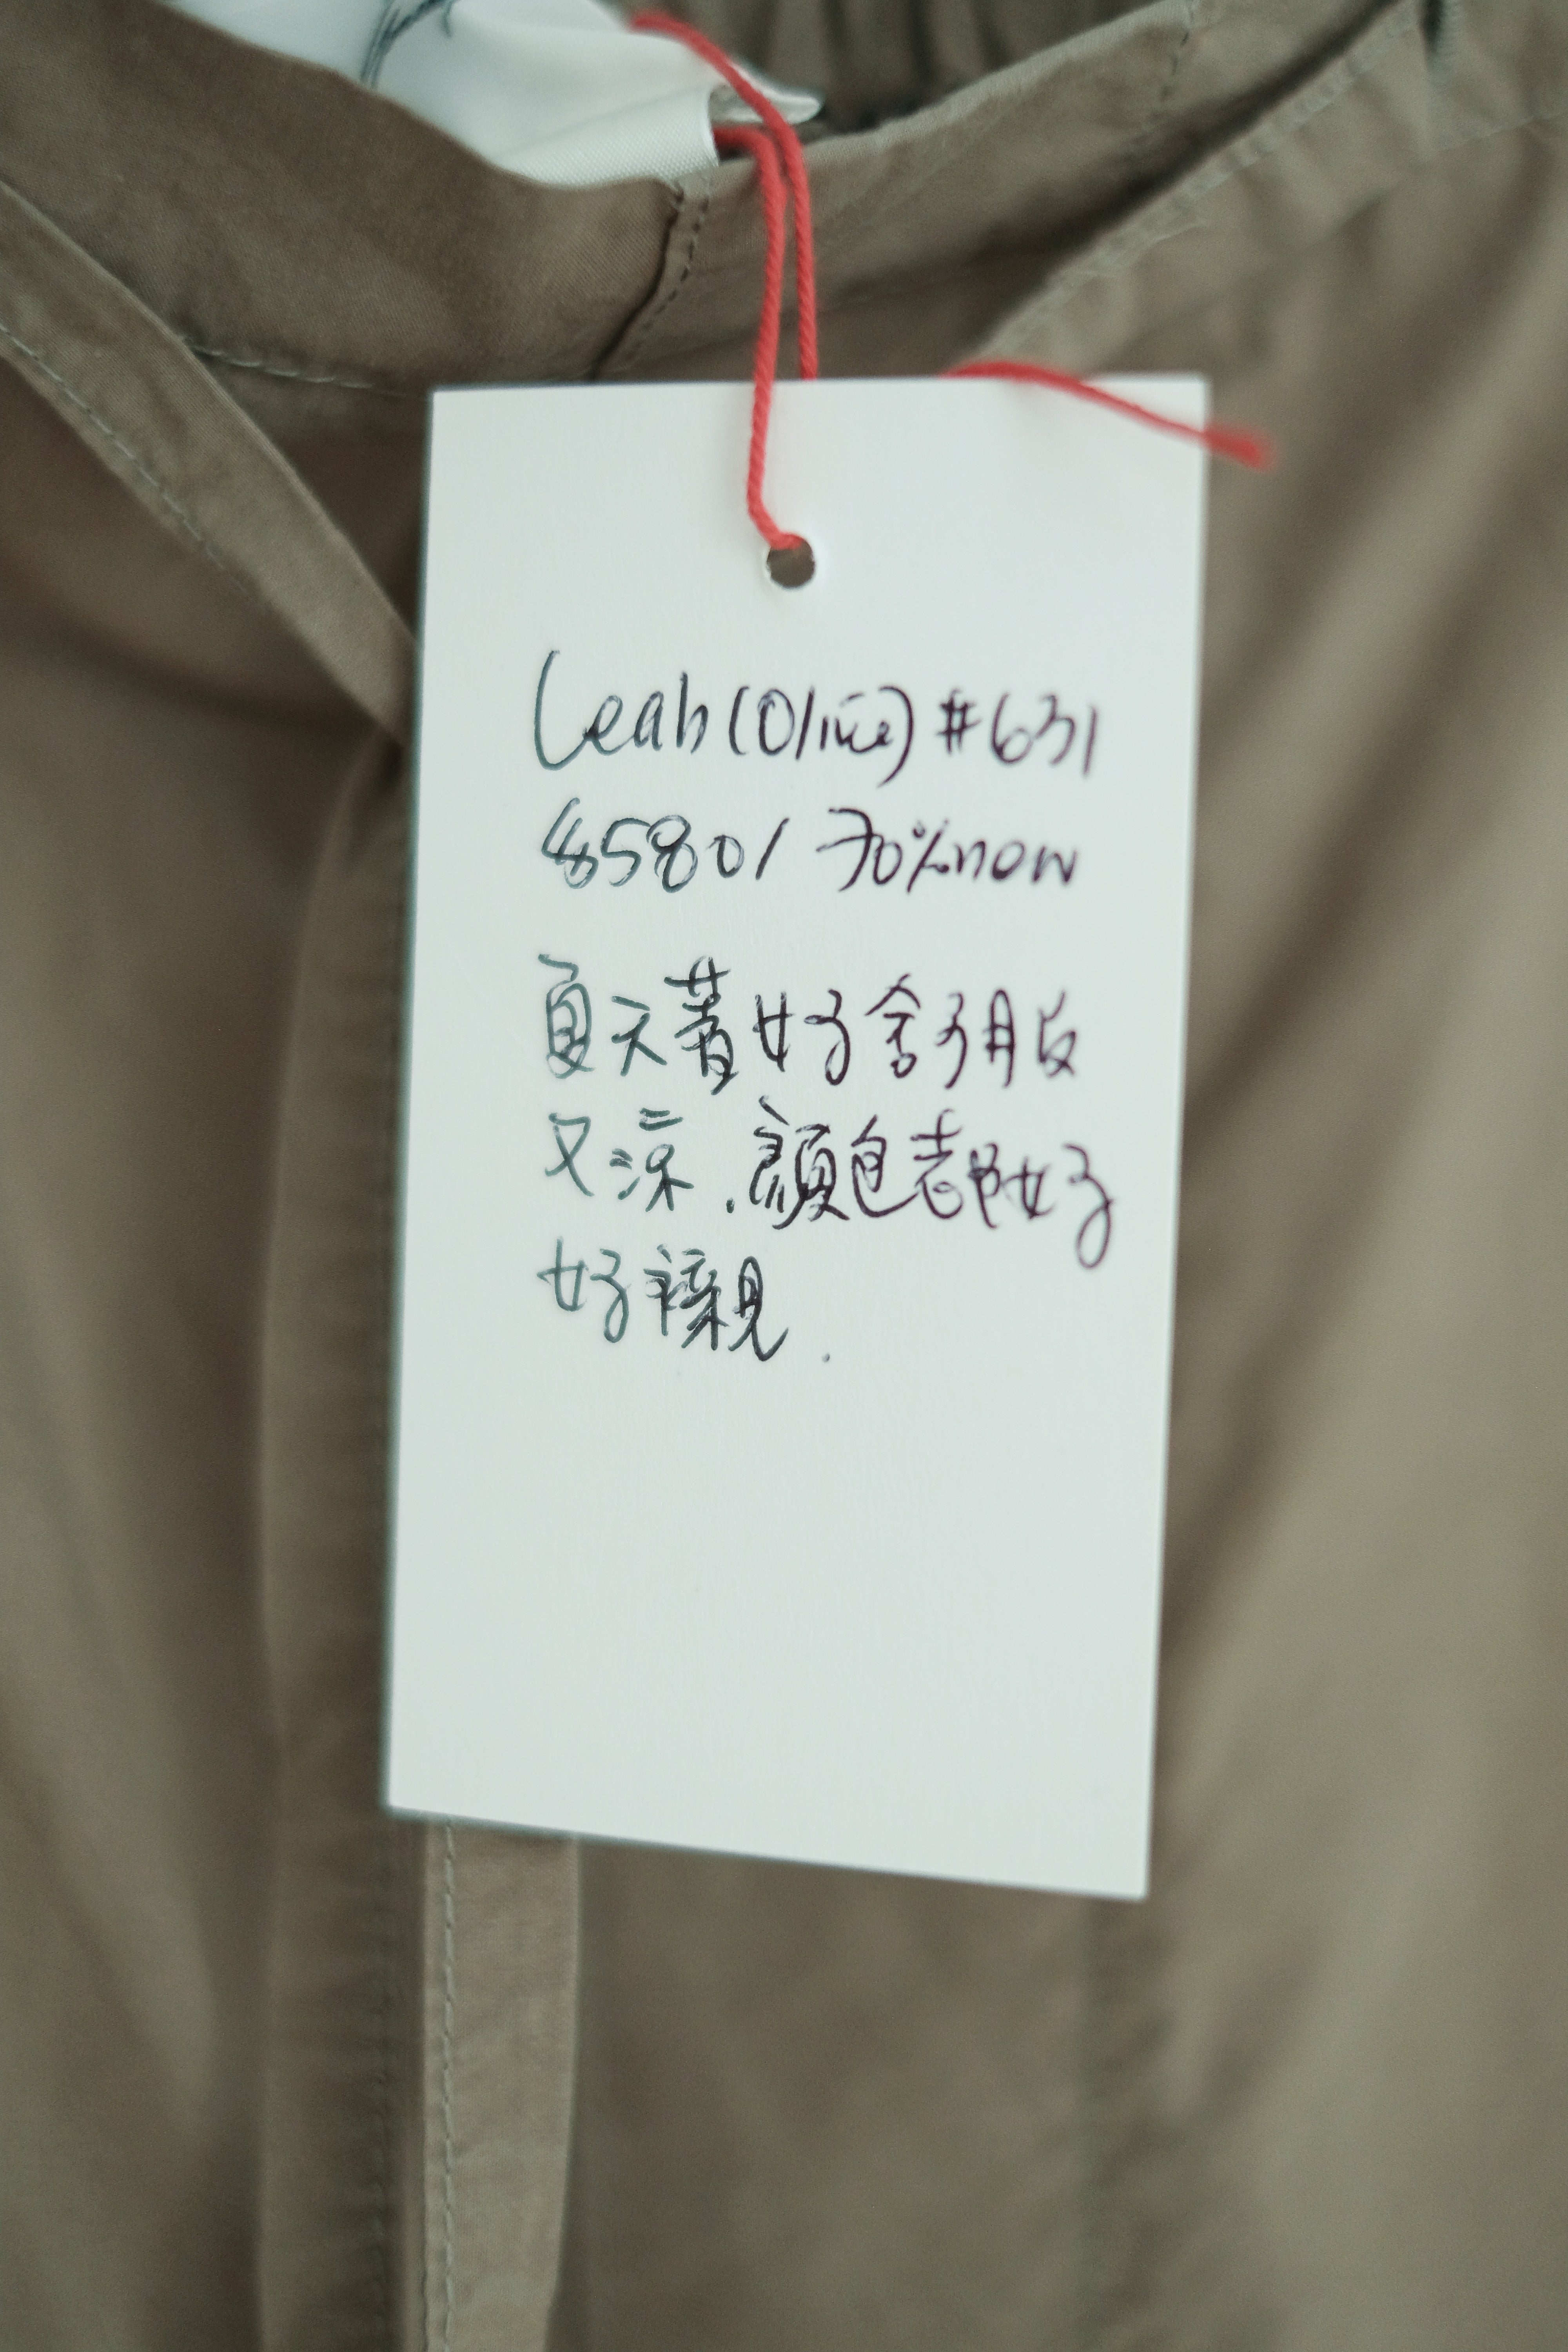 Leah (Olive) #631
$580 / 70% new
夏天著好舒服
又涼.顏色都好
好襯.